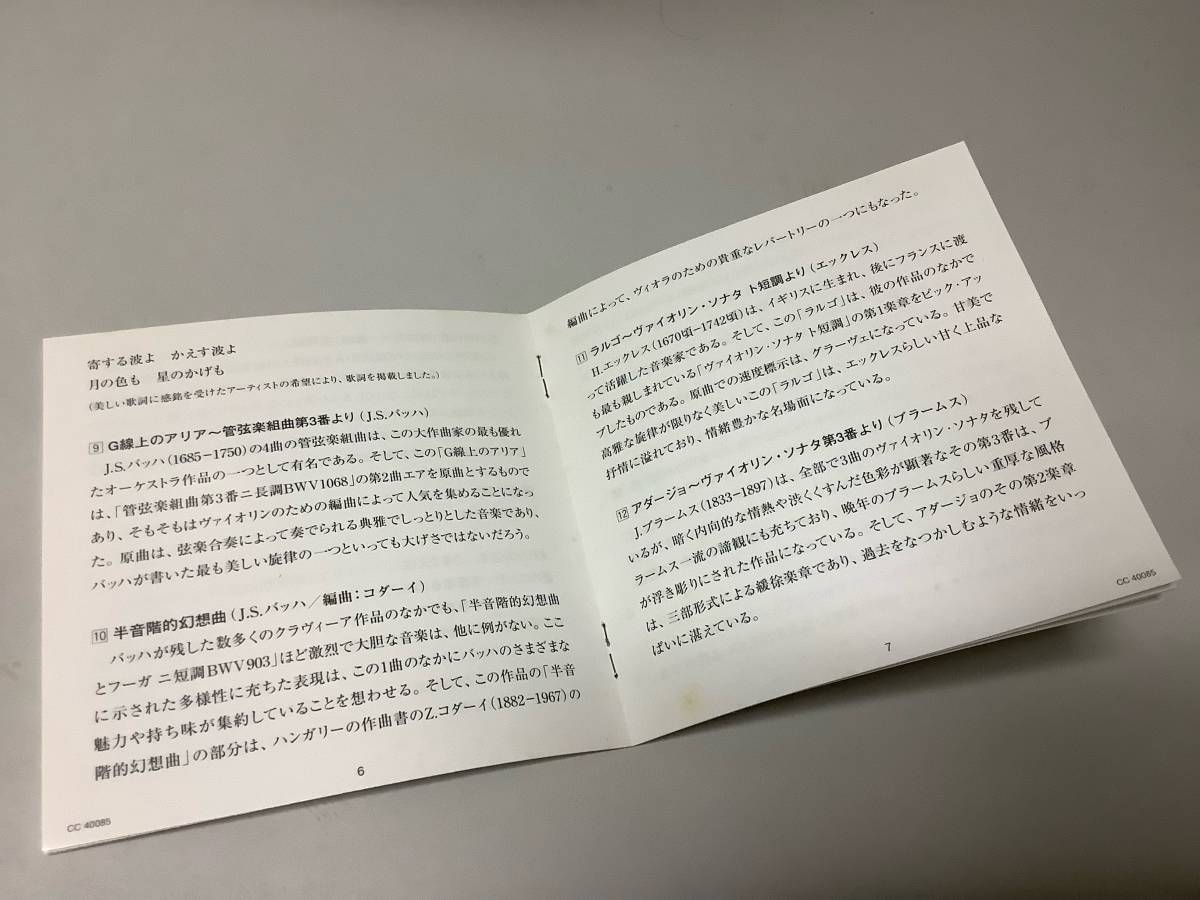 寄する波よ　かえす波よ
月の色も　星のかげも
(美しい歌詞に感銘を受けたアーティストの希望により、歌詞を掲載しました。)
9 G線上のアリア～管弦楽組曲第3番より(J.S.バッハ)
J.S.バッハ(1685−1750)の4曲の管弦楽組曲は、この大作曲家の最も優れ
たオーケストラ作品の一つとして有名である。そして、この「G線上のアリア」
は、「管弦楽組曲第3番ニ長調BWV1068」の第2曲エアを原曲とするもので
あり、そもそもはヴァイオリンのための編曲によって人気を集めることになっ
た。原曲は、弦楽合奏によって奏でられる典雅でしっとりとした音楽であり、
バッハが書いた最も美しい旋律の一つといっても大げさではないだろう。
10 半音階的幻想曲(J.S.バッハ／編曲：コダーイ)
バッハが残した数多くのクラヴィーア作品のなかでも、「半音階的幻想曲
とフーガ ニ短調BWV903」ほど激烈で大胆な音楽は、他に例がない。ここ
に示された多様性に充ちた表現は、この1曲のなかにバッハのさまざまな
魅力や持ち味が集約していることを想わせる。そして、この作品の「半音
階的幻想曲」の部分は、ハンガリーの作曲書のZ.コダーイ(1882−1967)の
6
CC 40085
編曲によって、ヴィオラのための貴重なレパートリーの一つにもなった。
11 ラルゴ～ヴァイオリン・ソナタ ト短調より(エックレス)
H.エックレス(1670頃−1742頃)は、イギリスに生まれ、後にフランスに渡
って活躍した音楽家である。そして、この「ラルゴ」は、彼の作品のなかで
も最も親しまれている「ヴァイオリン・ソナタ ト短調」の第1楽章をピック・アッ
プしたものである。原曲での速度標示は、グラーヴェになっている。甘美で
高雅な旋律が限りなく美しいこの「ラルゴ」は、エックレスらしい甘く上品な
抒情に溢れており、情緒豊かな名場面になっている。
12 アダージョ～ヴァイオリン・ソナタ第3番より(ブラームス)
J.ブラームス(1833−1897)は、全部で3曲のヴァイオリン・ソナタを残して
いるが、暗く内向的な情熱や渋くくすんだ色彩が顕著なその第3番は、ブ
ラームス一流の諦観にも充ちており、晩年のブラームスらしい重厚な風格
が浮き彫りにされた作品になっている。そして、アダージョのその第2楽章
は、三部形式による緩徐楽章であり、過去をなつかしむような情緒をいっ
ぱいに湛えている。
7
CC 40085